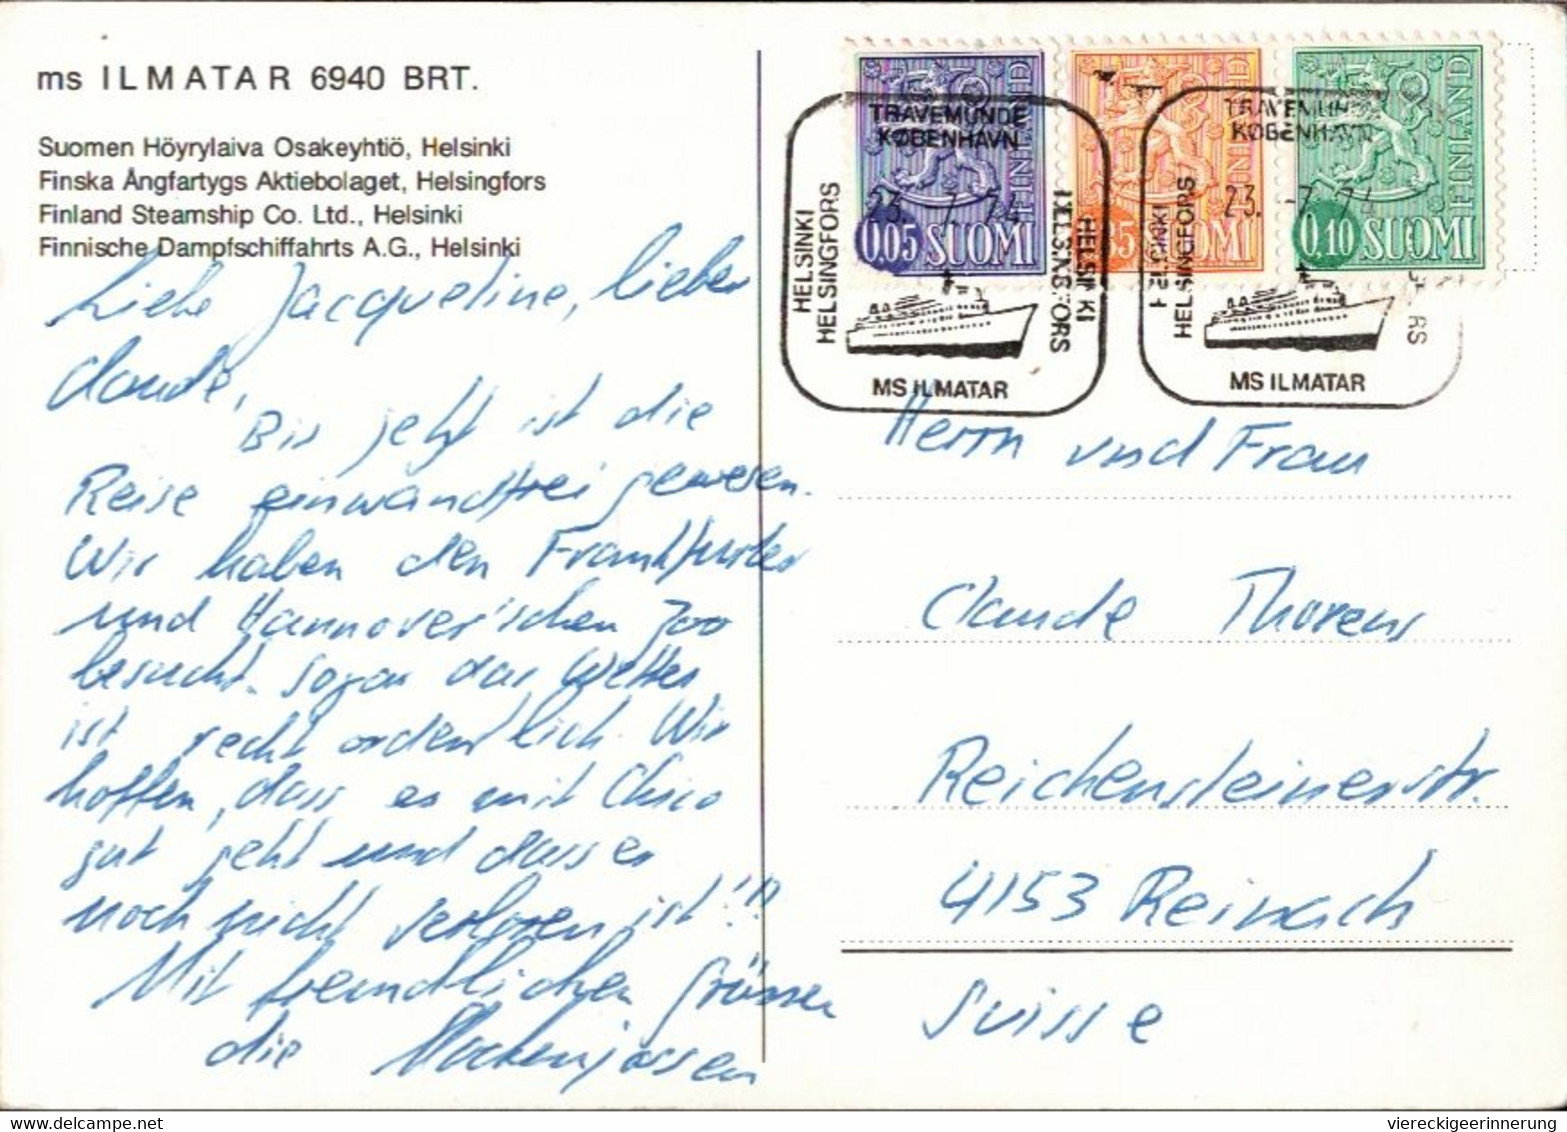 ms ILMATAR 6940 BRT.
Suomen Höyrylaiva Osakeyhtiö, Helsinki
Finska Ångfartygs Aktiebolaget, Helsingfors
Finland Steamship Co. Ltd., Helsinki
Finnische Dampfschiffahrts A.G., Helsinki
Liebe Jacqueline, lieber
Claude,
Bis jetzt ist die
Reise einwandfrei gewesen.
Wir haben den Frankfurter
und Hannover'schen Zoo
besucht. Sogar das Wetter
ist recht ordentlich. Wir
hoffen, dass es mit Chico
gut geht und dass er
noch nicht verloren ist!!!
Mit freundlichen Grüssen
die
TRAVEMUNDE
KØBENHAVN
23. 7. 74
HELSINKI
HELSINGFORS
HELSINKI
HELSINGFORS
MS ILMATAR
0.05 SUOMI
FINLAND
5 SUOMI
FINLAND
0.10 SUOMI
FINLAND
TRAVEMUN
KØBENHAVN
23. -7. 74
HELSINKI
HELSINGFORS
RS
MS ILMATAR
Herrn und Frau
Claude Thorens
Reichensteinerstr.
4153 Reinach
Suisse
viereckigeerinnerung